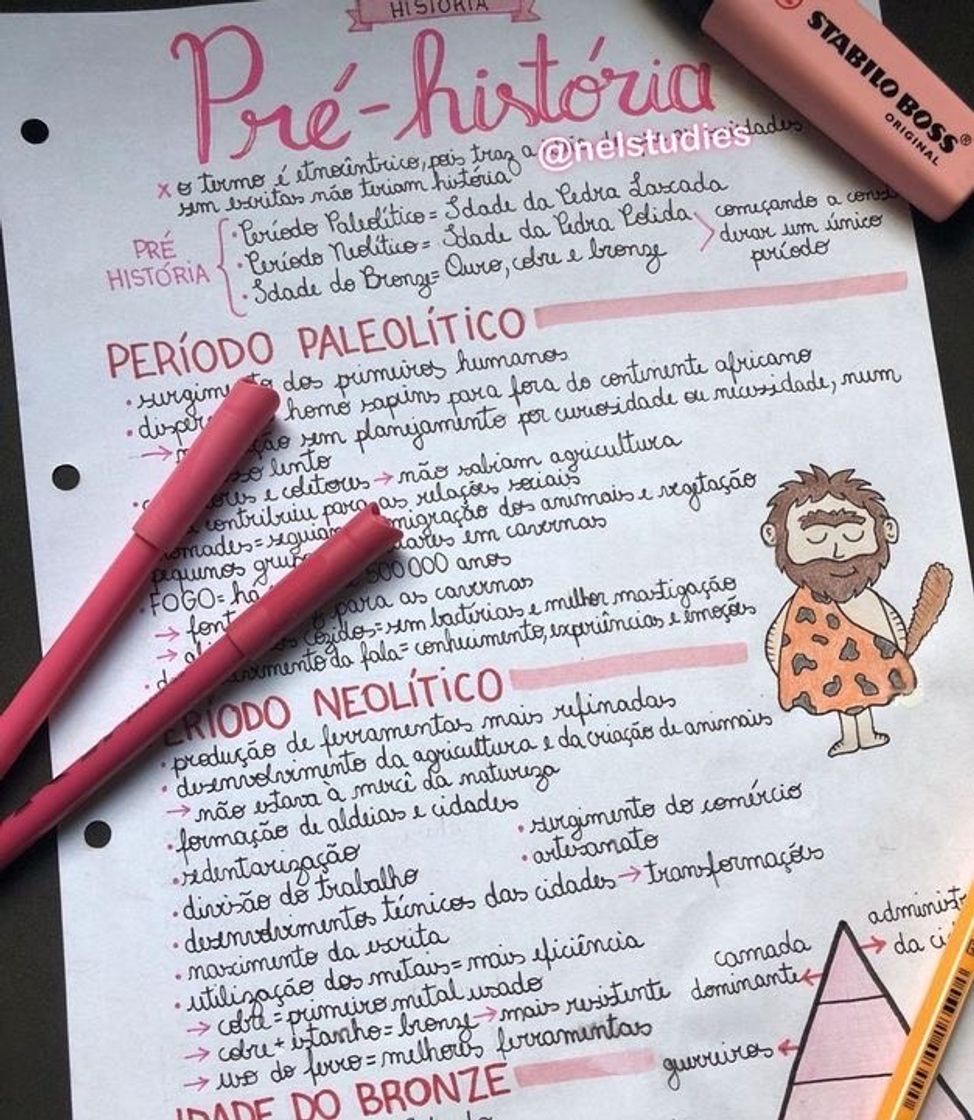 HISTÓRIA
Pré-história
STABILO BOSS
ORIGINAL
@nelstudies
x o termo é etnocêntrico, pois traz a
sem escritas não teriam história
PRÉ
HISTÓRIA
• Período Paleolítico = Idade da Pedra Lascada
• Período Neolítico = Idade da Pedra Polida
• Idade do Bronze = Ouro, cobre e bronze
começando a consi
derar um único
período
PERÍODO PALEOLÍTICO
• surgimento dos primeiros humanos
• homo sapiens para fora do continente africano
→ sem planejamento por curiosidade ou necessidade, num
lento
• e coletores → não sabiam agricultura
contribuiu para as relações sociais
nomades = migração dos animais e vegetação
pequenos em cavernas
FOGO = há 500 000 anos
→ para as cavernas
→ cozidos = sem bactérias e melhor mastigação
• da fala = conhecimento, experiências e emoções
PERÍODO NEOLÍTICO
• produção de ferramentas mais refinadas
• desenvolvimento da agricultura e da criação de animais
→ não estava à mercê da natureza
• formação de aldeias e cidades
• surgimento do comércio
• sedentarização
• artesanato
• divisão do trabalho
• desenvolvimentos técnicos das cidades → transformações
• nascimento da escrita
• utilização dos metais = mais eficiência
→ cobre = primeiro metal usado
→ cobre + estanho = bronze → mais resistente
→ uso do ferro = melhores ferramentas
administ
da ci
camada
dominante
guerreiros
IDADE DO BRONZE